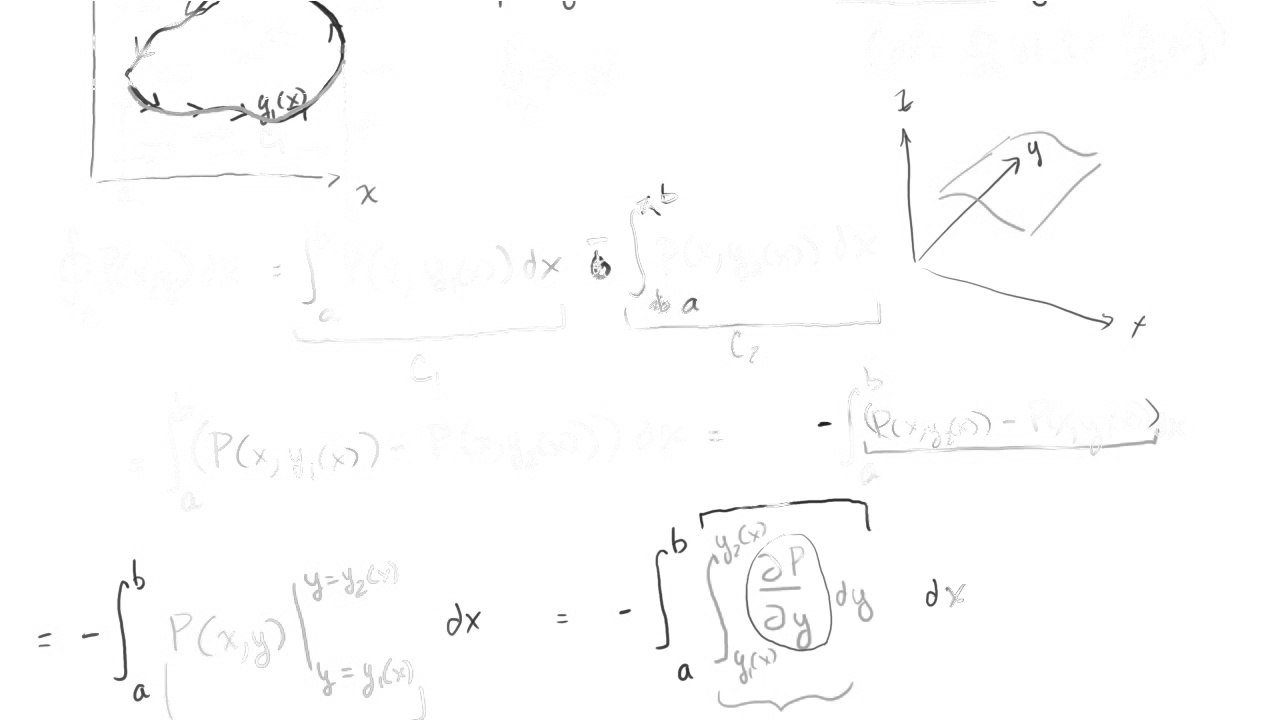 y₁(x)
x
z
y
x
∮_C P(x,y) dx = ∫_a^b P(x, y₁(x)) dx - ∫_a^b P(x, y₂(x)) dx
C₁
C₂
= ∫_a^b (P(x, y₁(x)) - P(x, y₂(x))) dx = - ∫_a^b (P(x, y₂(x)) - P(x, y₁(x))) dx
= - ∫_a^b P(x,y) |_{y = y₁(x)}^{y = y₂(x)} dx = - ∫_a^b ∫_{y₁(x)}^{y₂(x)} ∂P/∂y dy dx